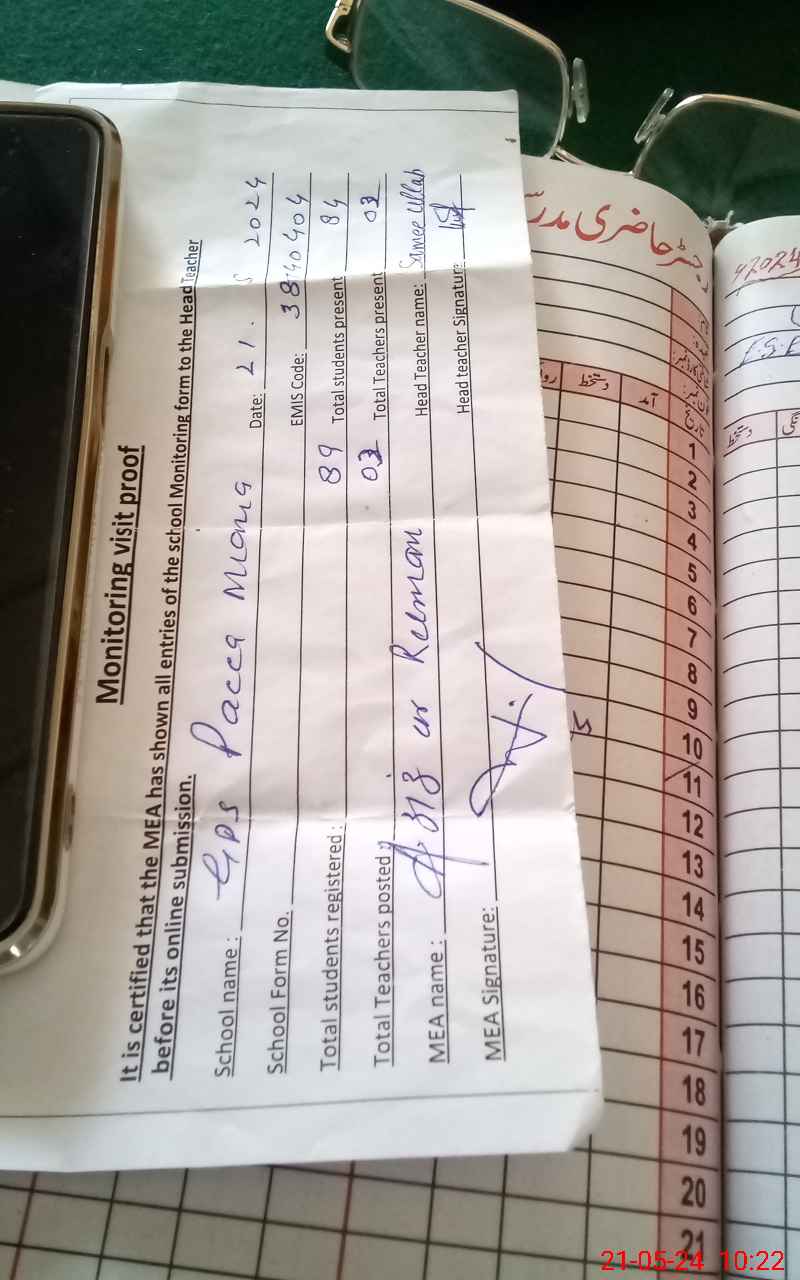 Monitoring visit proof
It is certified that the MEA has shown all entries of the school Monitoring form to the Head Teacher
before its online submission.
School name : GPS Pacca Miana Date: 21. 5 2024
School Form No. EMIS Code: 38740404
Total students registered : 89 Total students present 84
Total Teachers posted : 03 Total Teachers present 03
MEA name : Rehman Head Teacher name: Samee Ullah
MEA Signature: Head teacher Signature:
رجسٹر حاضری مدرسہ
تاریخ آمد دستخط
1
2
3
4
5
6
7
8
9
10
11
12
13
14
15
16
17
18
19
20
21
دستخط
21-05-24 10:22